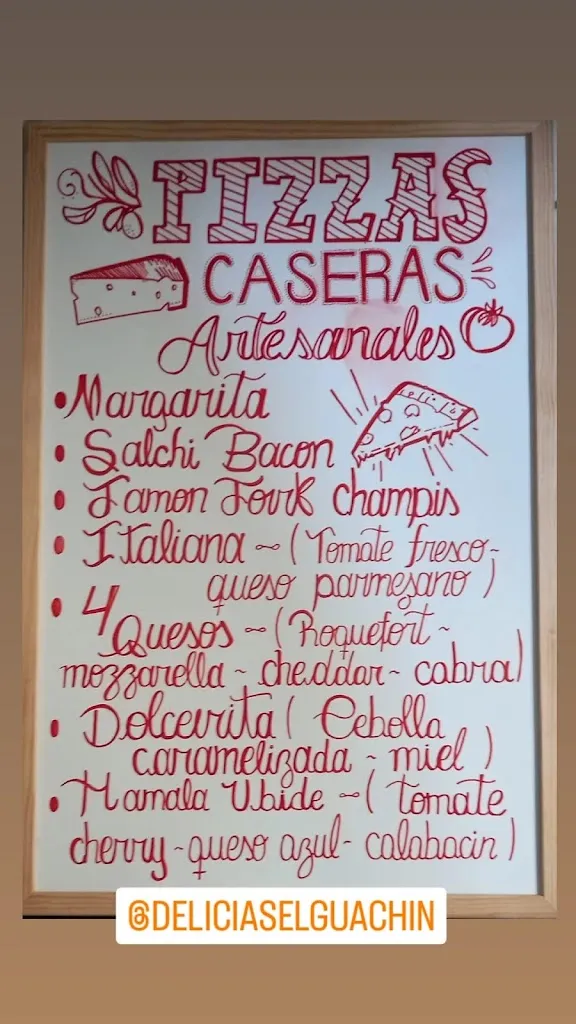 PIZZAS
CASERAS
Artesanales
• Margarita
• Salchi Bacon
• Jamon Fork champis
• Italiana ~ (Tomate fresco-
queso parmezano)
• 4 Quesos ~ (Roquefort ~
mozzarella ~ cheddar ~ cabra)
• Dolcevita ( Cebolla
caramelizada ~ miel )
• Mamala Ubide ~ ( tomate
cherry ~ queso azul - calabacin )
@DELICIASELGUACHIN